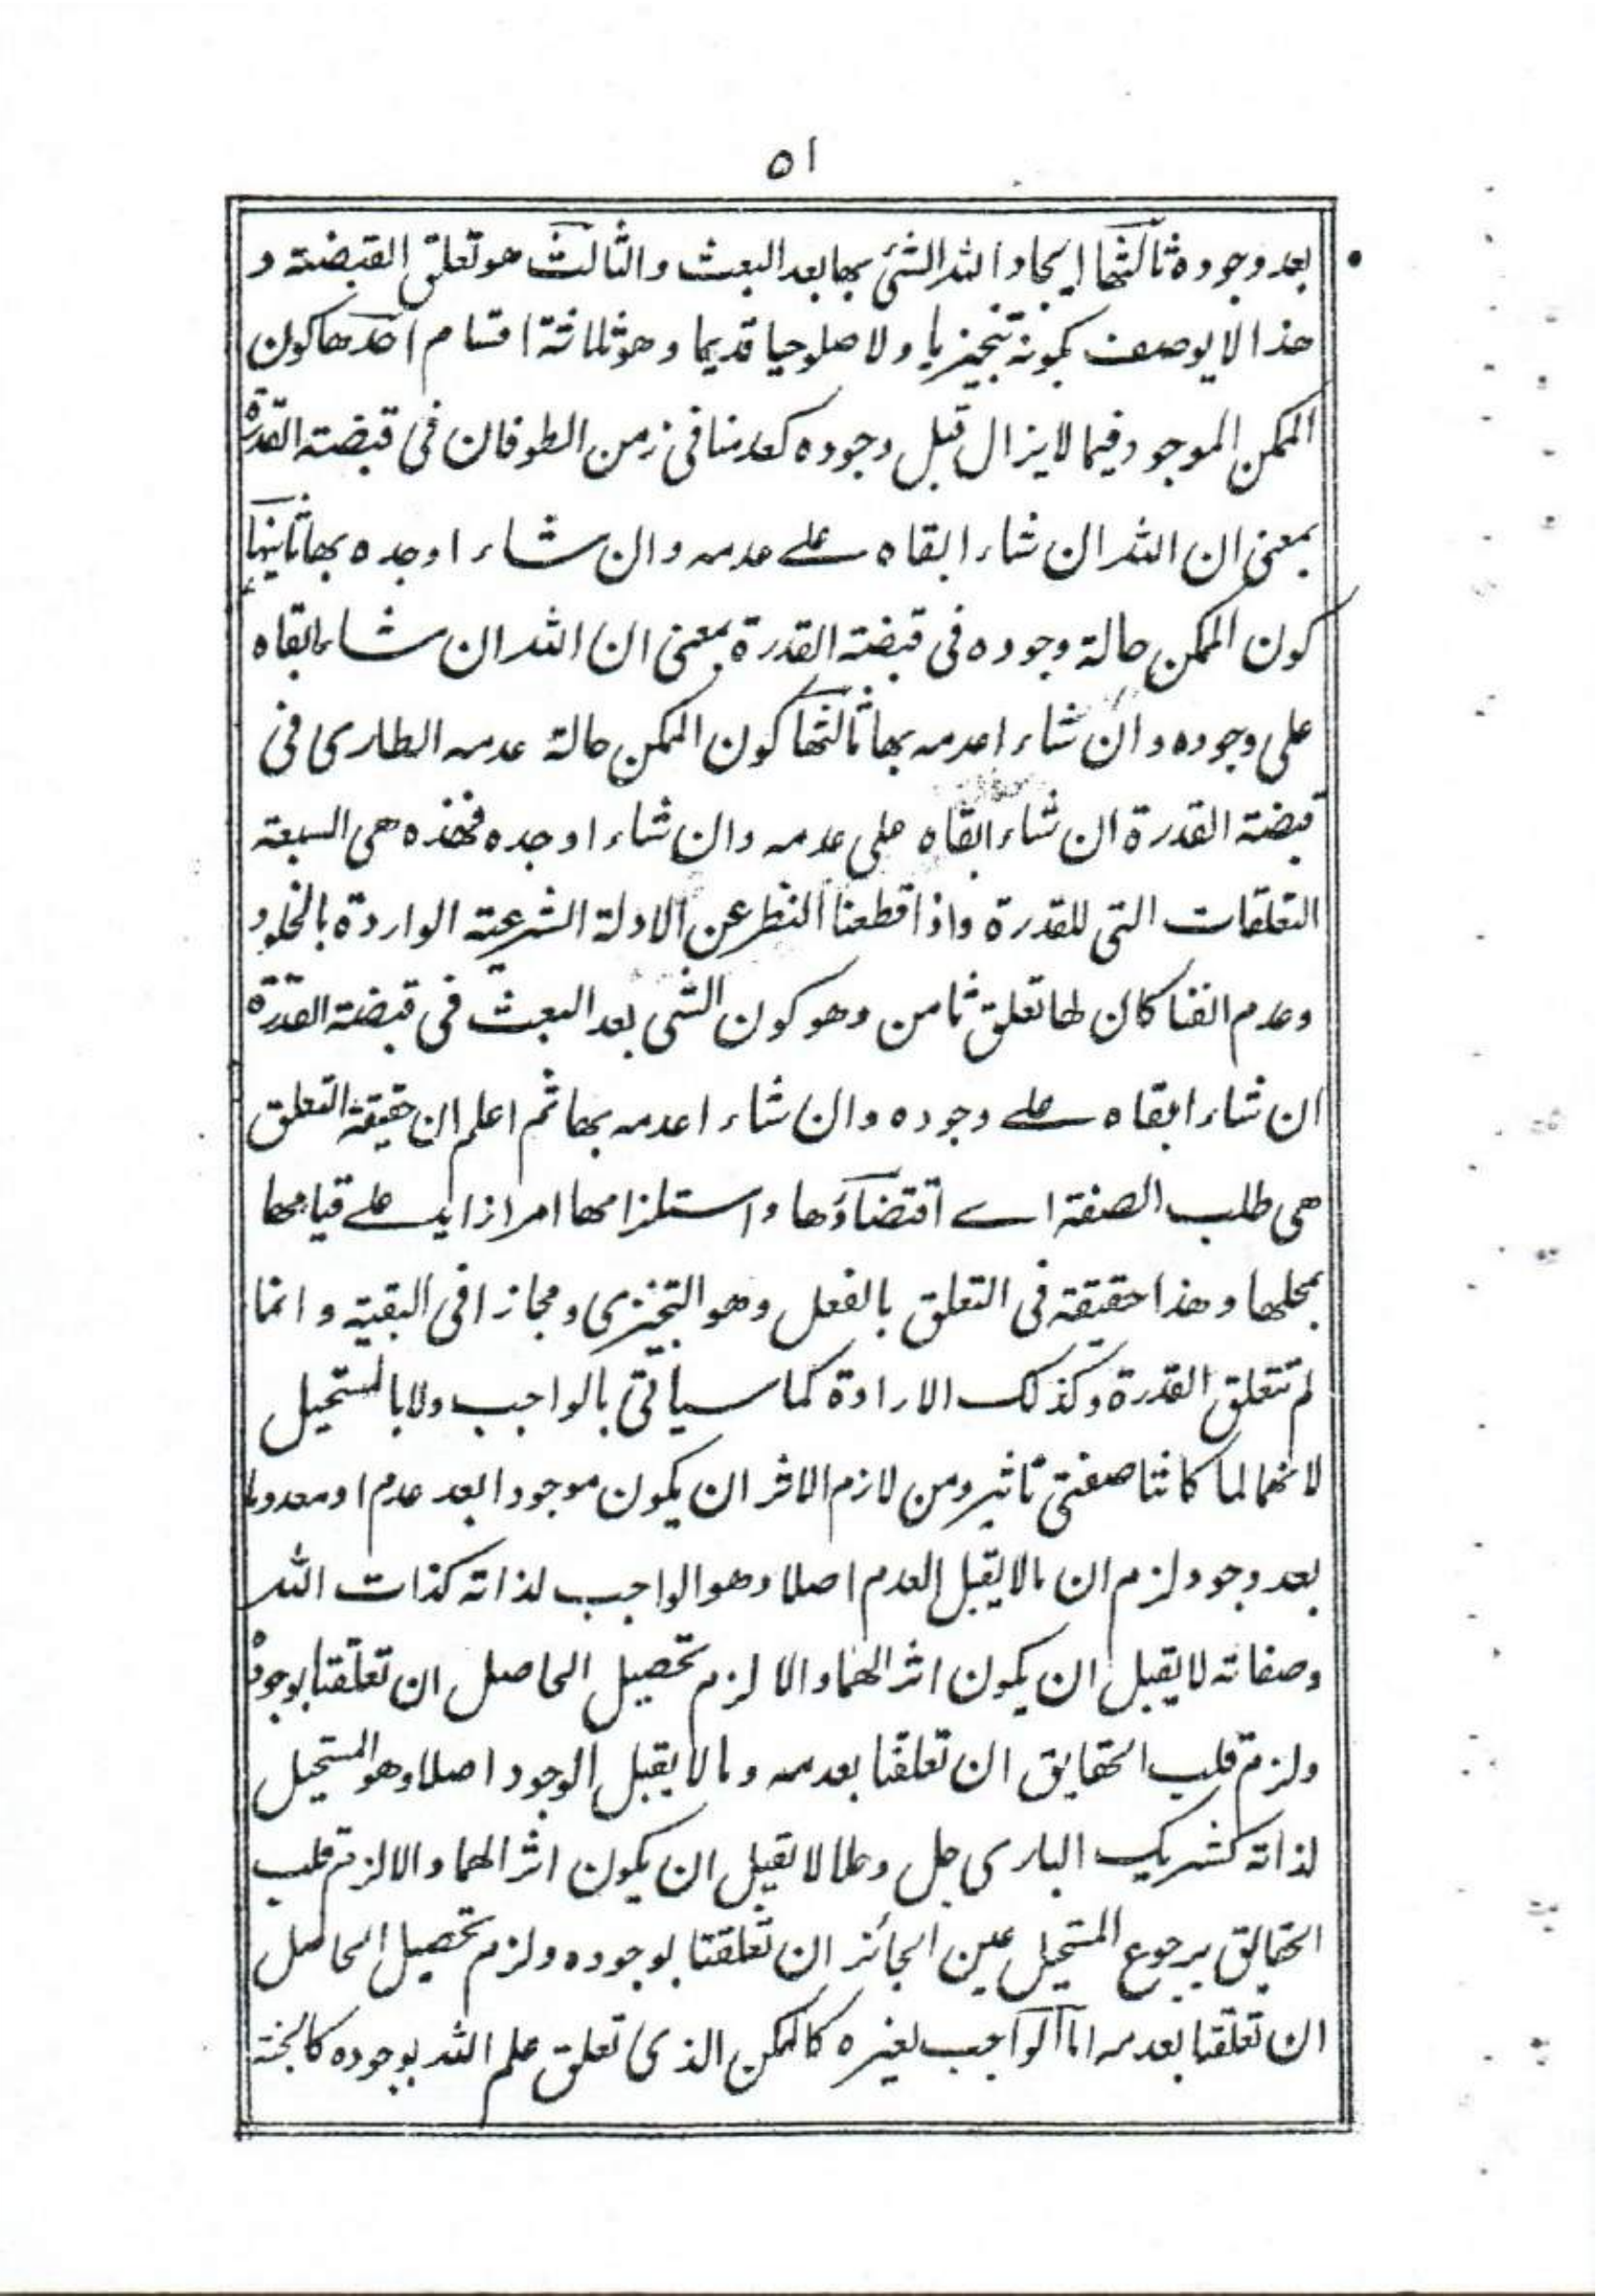 ٥١
بعد وجوده ثالثها ايجاد الله الشئ بها بعد البعث والثالث هو تعلق القبضة و
هذا لا يوصف بكونه تنجيزيا ولا صلوحيا قديما وهو ثلاثة اقسام احدها كون
الممكن الموجود فيما لا يزال قبل وجوده كعدمنا فى زمن الطوفان فى قبضة القدرة
بمعنى ان الله ان شاء ابقاه على عدمه وان شاء اوجده بها ثانيها
كون الممكن حالة وجوده فى قبضة القدرة بمعنى ان الله ان شاء ابقاه
على وجوده وان شاء اعدمه بها ثالثها كون الممكن حالة عدمه الطارى فى
قبضة القدرة ان شاء ابقاه على عدمه وان شاء اوجده فهذه هى السبعة
التعلقات التى للقدرة واذا قطعنا النظر عن الادلة الشرعية الواردة بالخلود
وعدم الفنا كان لها تعلق ثامن وهو كون الشى بعد البعث فى قبضة القدرة
ان شاء ابقاه على وجوده وان شاء اعدمه بها ثم اعلم ان حقيقة التعلق
هى طلب الصفة اے اقتضاؤها واستلزامها امرا زايد على قيامها
بمحلها وهذا حقيقة فى التعلق بالفعل وهو التنجيزى ومجازا فى البقية وانما
لم تتعلق القدرة وكذلك الارادة كما سياتى بالواجب ولا بالمستحيل
لانهما لما كانتا صفتى تاثير ومن لازم الاثر ان يكون موجودا بعد عدم او معدوما
بعد وجود لزم ان مالا يقبل العدم اصلا وهو الواجب لذاته كذات الله
وصفاته لا يقبل ان يكون اثرا لهما والا لزم تحصيل الحاصل ان تعلقتا بوجوده
ولزم قلب الحقايق ان تعلقتا بعدمه ومالا يقبل الوجود اصلا وهو المستحيل
لذاته كشريك البارى جل وعلا لا يقبل ان يكون اثرا لهما والا لزم قلب
الحقايق برجوع المستحيل عين الجائز ان تعلقتا بوجوده ولزم تحصيل الحاصل
ان تعلقتا بعدمه اما الواجب لغيره كالممكن الذى تعلق علم الله بوجوده كالجنة